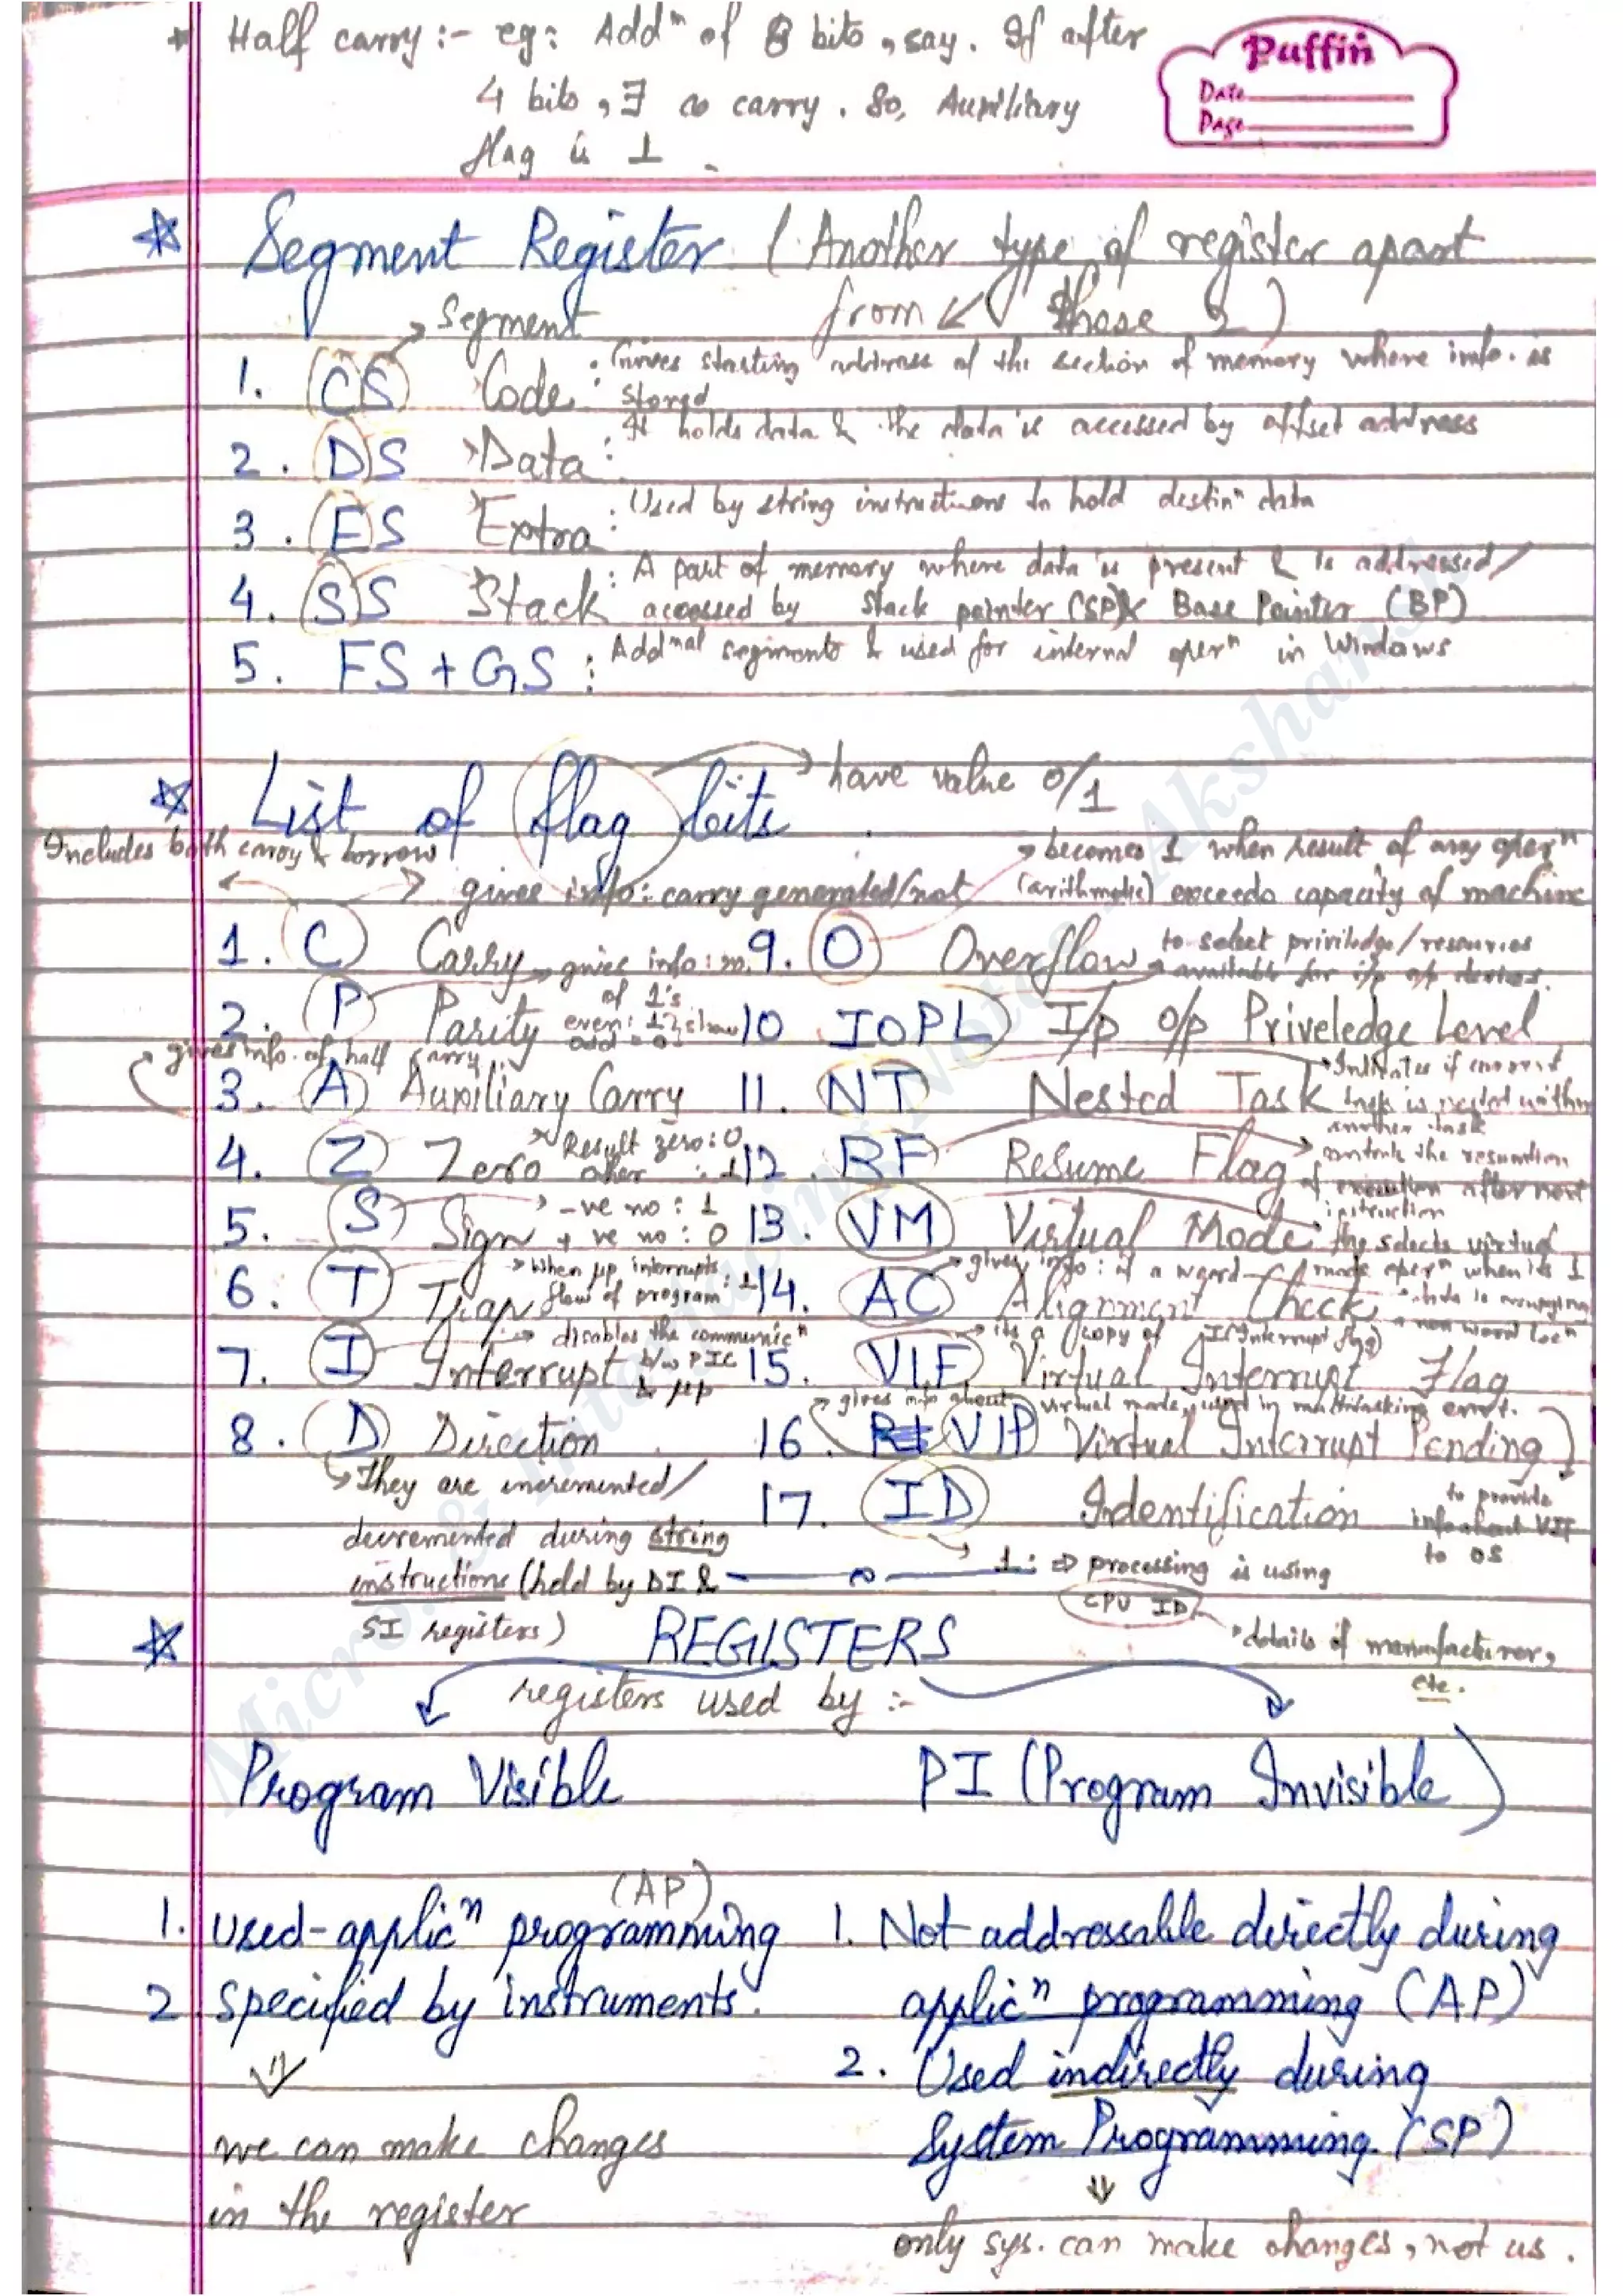 * Half carry :- eg: Addⁿ of 8 bits, say. If after
4 bits, ∃ a carry. So, Auxiliary
flag is 1
Puffin
Date
Page
☆ Segment Register (Another type of register apart
from ↙ those 2)
→ Segment
1. CS Code : Gives starting address of the section of memory where info. is
stored
2. DS Data : It holds data & the data is accessed by offset address
3. ES Extra : Used by string instructions to hold destinⁿ data
4. SS Stack : A part of memory where data is present & is addressed/
accessed by Stack pointer (SP) & Base Pointer (BP)
5. FS + GS : Addⁿᵃˡ segments & used for internal operⁿ in Windows
☆ List of flag bits → have value 0/1
Includes both carry & borrow
→ gives info: carry generated/not
→ becomes 1 when result of any operⁿ
(arithmetic) exceeds capacity of machine
1. C Carry
2. P Parity → gives info: no.
of 1's
even: 1
odd = 0
gives info. of half carry
3. A Auxiliary Carry
4. Z Zero → Result zero: 0
other : 1
5. S Sign → -ve no : 1
+ ve no : 0
6. T Trap → When μp interrupts
flow of program : 1
7. I Interrupt → disables the communicⁿ
b/w PIC
& μp
8. D Direction
→ They are incremented/
decremented during string
instructions (held by DI &
SI registers)
9. O Overflow
to select priviledge/resources
available for i/p o/p devices.
10 IOPL I/p o/p Priveledge Level
11. NT Nested Task → Indicates if current
task is nested within
another task
12. RF Resume Flag → controls the resumtion
of execution after next
instruction
13. VM Virtual Mode selects virtual
mode operⁿ when its 1
14. AC Alignment Check → gives info: if a word
15. VIF Virtual Interrupt Flag → its a copy of I (Interrupt flag)
→ gives info about virtual mode, used in multitasking
16. VIP Virtual Interrupt Pending
to provide
info about VIF
to OS
17. ID Identification
→ 1: ⇒ processing is using
CPU ID → details of manufacturer,
etc.
☆ REGISTERS
registers used by :-
Program Visible
PI (Program Invisible)
(AP)
1. used-applicⁿ programming
2. specified by instruments.
⇓
we can make changes
in the register
1. Not addressable directly during
applicⁿ programming (AP)
2. Used indirectly during
System Programming. (SP)
⇓
only sys. can make changes, not us.
Micro. & Interfacing Notes - Akshansh